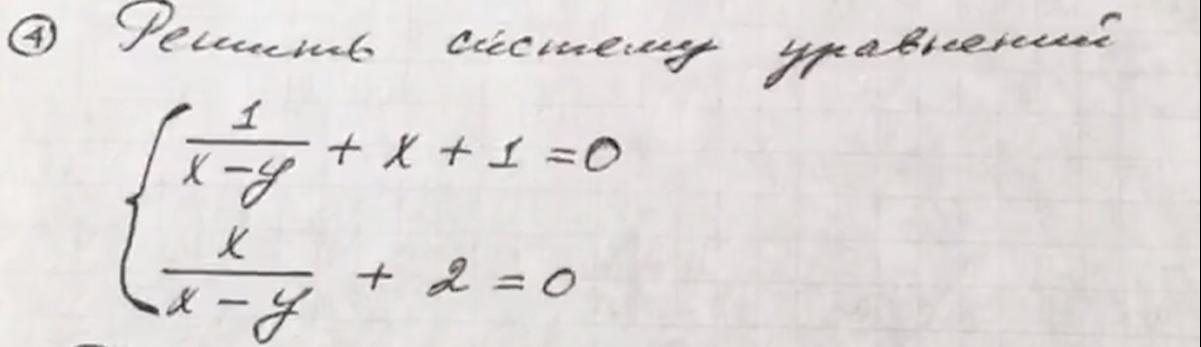 ④ Решить систему уравнений
{ 1/(x-y) + x + 1 = 0
x/(x-y) + 2 = 0